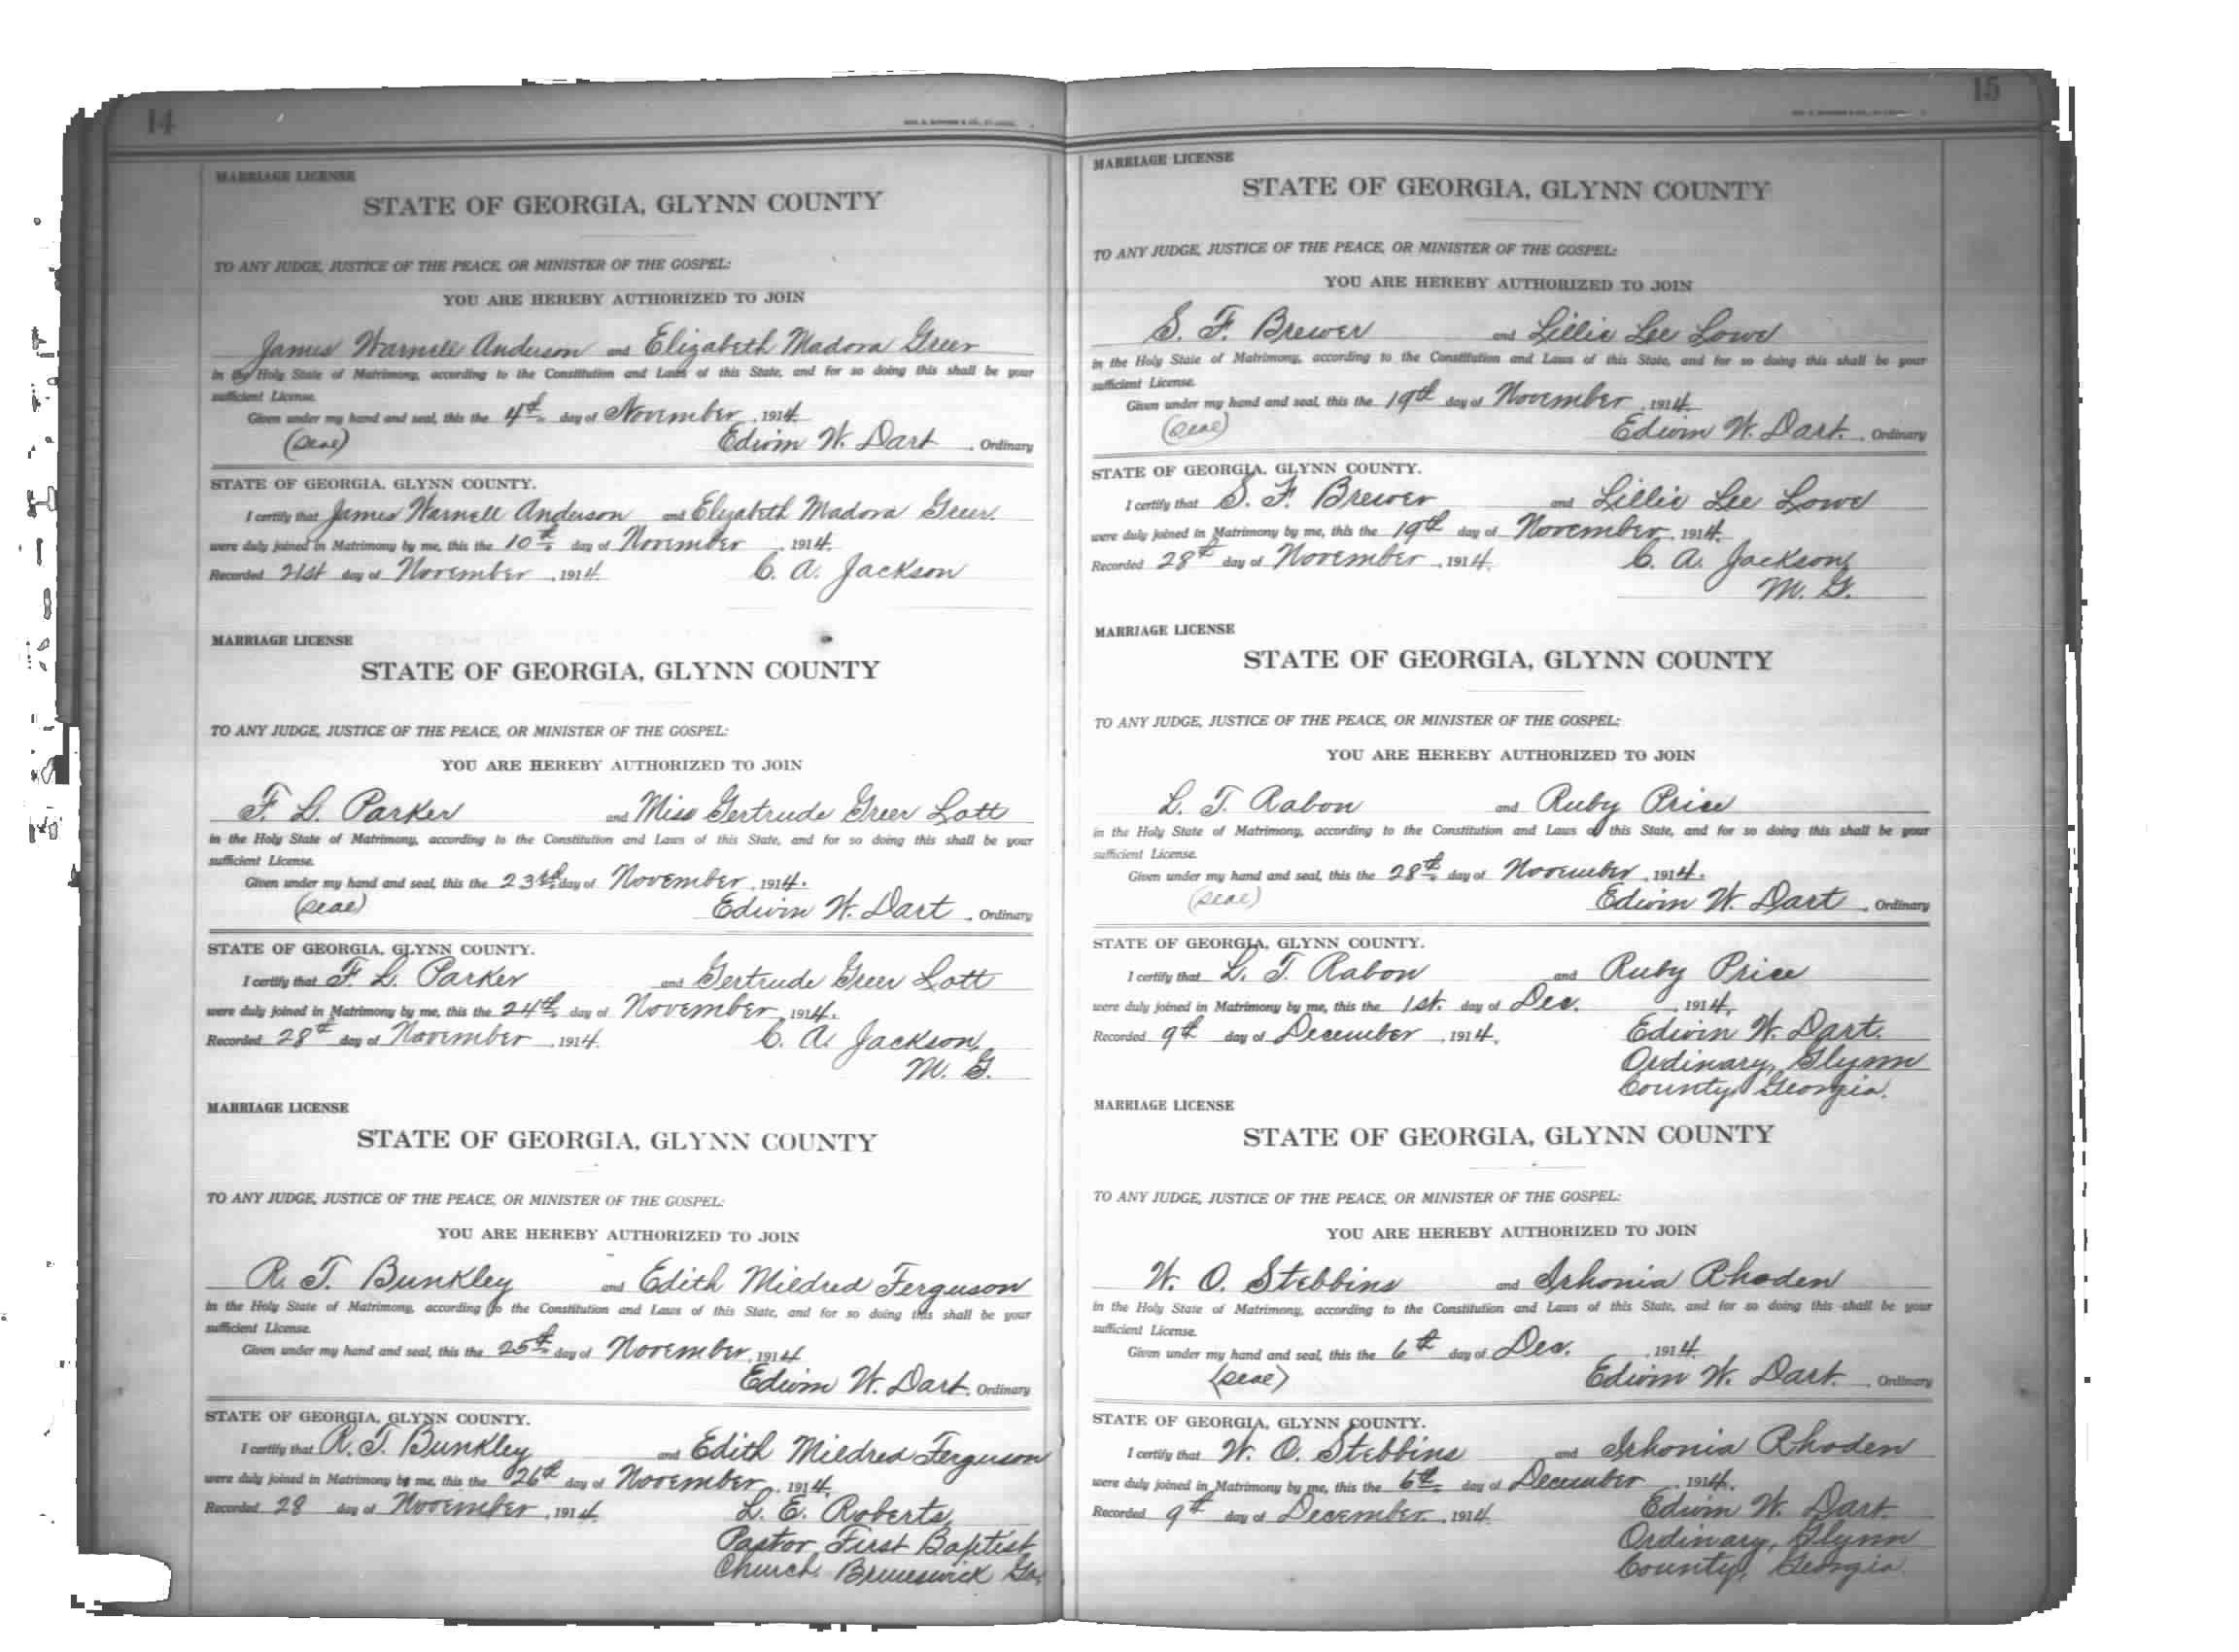 14
MARRIAGE LICENSE
STATE OF GEORGIA, GLYNN COUNTY
TO ANY JUDGE, JUSTICE OF THE PEACE, OR MINISTER OF THE GOSPEL:
YOU ARE HEREBY AUTHORIZED TO JOIN
James Warnell Anderson and Elizabeth Madora Greer
in the Holy State of Matrimony, according to the Constitution and Laws of this State, and for so doing this shall be your
sufficient License.
Given under my hand and seal, this the 4th day of November, 1914
(Seal) Edwin W. Dart, Ordinary
STATE OF GEORGIA, GLYNN COUNTY.
I certify that James Warnell Anderson and Elizabeth Madora Greer.
were duly joined in Matrimony by me, this the 10th day of November, 1914.
Recorded 21st day of November, 1914 C. A. Jackson
MARRIAGE LICENSE
STATE OF GEORGIA, GLYNN COUNTY
TO ANY JUDGE, JUSTICE OF THE PEACE, OR MINISTER OF THE GOSPEL:
YOU ARE HEREBY AUTHORIZED TO JOIN
F. L. Parker and Miss Gertrude Greer Lott
in the Holy State of Matrimony, according to the Constitution and Laws of this State, and for so doing this shall be your
sufficient License.
Given under my hand and seal, this the 23rd day of November, 1914.
(Seal) Edwin W. Dart, Ordinary
STATE OF GEORGIA, GLYNN COUNTY.
I certify that F. L. Parker and Gertrude Greer Lott
were duly joined in Matrimony by me, this the 24th day of November, 1914.
Recorded 28th day of November, 1914. C. A. Jackson,
M. G.
MARRIAGE LICENSE
STATE OF GEORGIA, GLYNN COUNTY
TO ANY JUDGE, JUSTICE OF THE PEACE, OR MINISTER OF THE GOSPEL:
YOU ARE HEREBY AUTHORIZED TO JOIN
R. T. Bunkley and Edith Mildred Ferguson
in the Holy State of Matrimony, according to the Constitution and Laws of this State, and for so doing this shall be your
sufficient License.
Given under my hand and seal, this the 25th day of November, 1914
Edwin W. Dart, Ordinary
STATE OF GEORGIA, GLYNN COUNTY.
I certify that R. T. Bunkley and Edith Mildred Ferguson
were duly joined in Matrimony by me, this the 26th day of November, 1914.
Recorded 28 day of November, 1914. L. E. Roberts,
Pastor First Baptist
Church, Brunswick Ga.
15
MARRIAGE LICENSE
STATE OF GEORGIA, GLYNN COUNTY
TO ANY JUDGE, JUSTICE OF THE PEACE, OR MINISTER OF THE GOSPEL:
YOU ARE HEREBY AUTHORIZED TO JOIN
S. F. Brewer and Lillie Lee Lowe
in the Holy State of Matrimony, according to the Constitution and Laws of this State, and for so doing this shall be your
sufficient License.
Given under my hand and seal, this the 19th day of November, 1914.
(Seal) Edwin W. Dart, Ordinary
STATE OF GEORGIA, GLYNN COUNTY.
I certify that S. F. Brewer and Lillie Lee Lowe
were duly joined in Matrimony by me, this the 19th day of November, 1914.
Recorded 28th day of November, 1914. C. A. Jackson,
M. G.
MARRIAGE LICENSE
STATE OF GEORGIA, GLYNN COUNTY
TO ANY JUDGE, JUSTICE OF THE PEACE, OR MINISTER OF THE GOSPEL:
YOU ARE HEREBY AUTHORIZED TO JOIN
L. T. Rabon and Ruby Price
in the Holy State of Matrimony, according to the Constitution and Laws of this State, and for so doing this shall be your
sufficient License.
Given under my hand and seal, this the 28th day of November, 1914.
(Seal) Edwin W. Dart, Ordinary
STATE OF GEORGIA, GLYNN COUNTY.
I certify that L. T. Rabon and Ruby Price
were duly joined in Matrimony by me, this the 1st. day of Dec., 1914.
Recorded 9th day of December, 1914. Edwin W. Dart.
Ordinary, Glynn
County, Georgia.
MARRIAGE LICENSE
STATE OF GEORGIA, GLYNN COUNTY
TO ANY JUDGE, JUSTICE OF THE PEACE, OR MINISTER OF THE GOSPEL:
YOU ARE HEREBY AUTHORIZED TO JOIN
W. O. Stebbins and Irhonia Rhoden
in the Holy State of Matrimony, according to the Constitution and Laws of this State, and for so doing this shall be your
sufficient License.
Given under my hand and seal, this the 6th day of Dec., 1914.
(Seal) Edwin W. Dart, Ordinary
STATE OF GEORGIA, GLYNN COUNTY.
I certify that W. O. Stebbins and Irhonia Rhoden
were duly joined in Matrimony by me, this the 6th day of December, 1914.
Recorded 9th day of December, 1914. Edwin W. Dart.
Ordinary, Glynn
County, Georgia